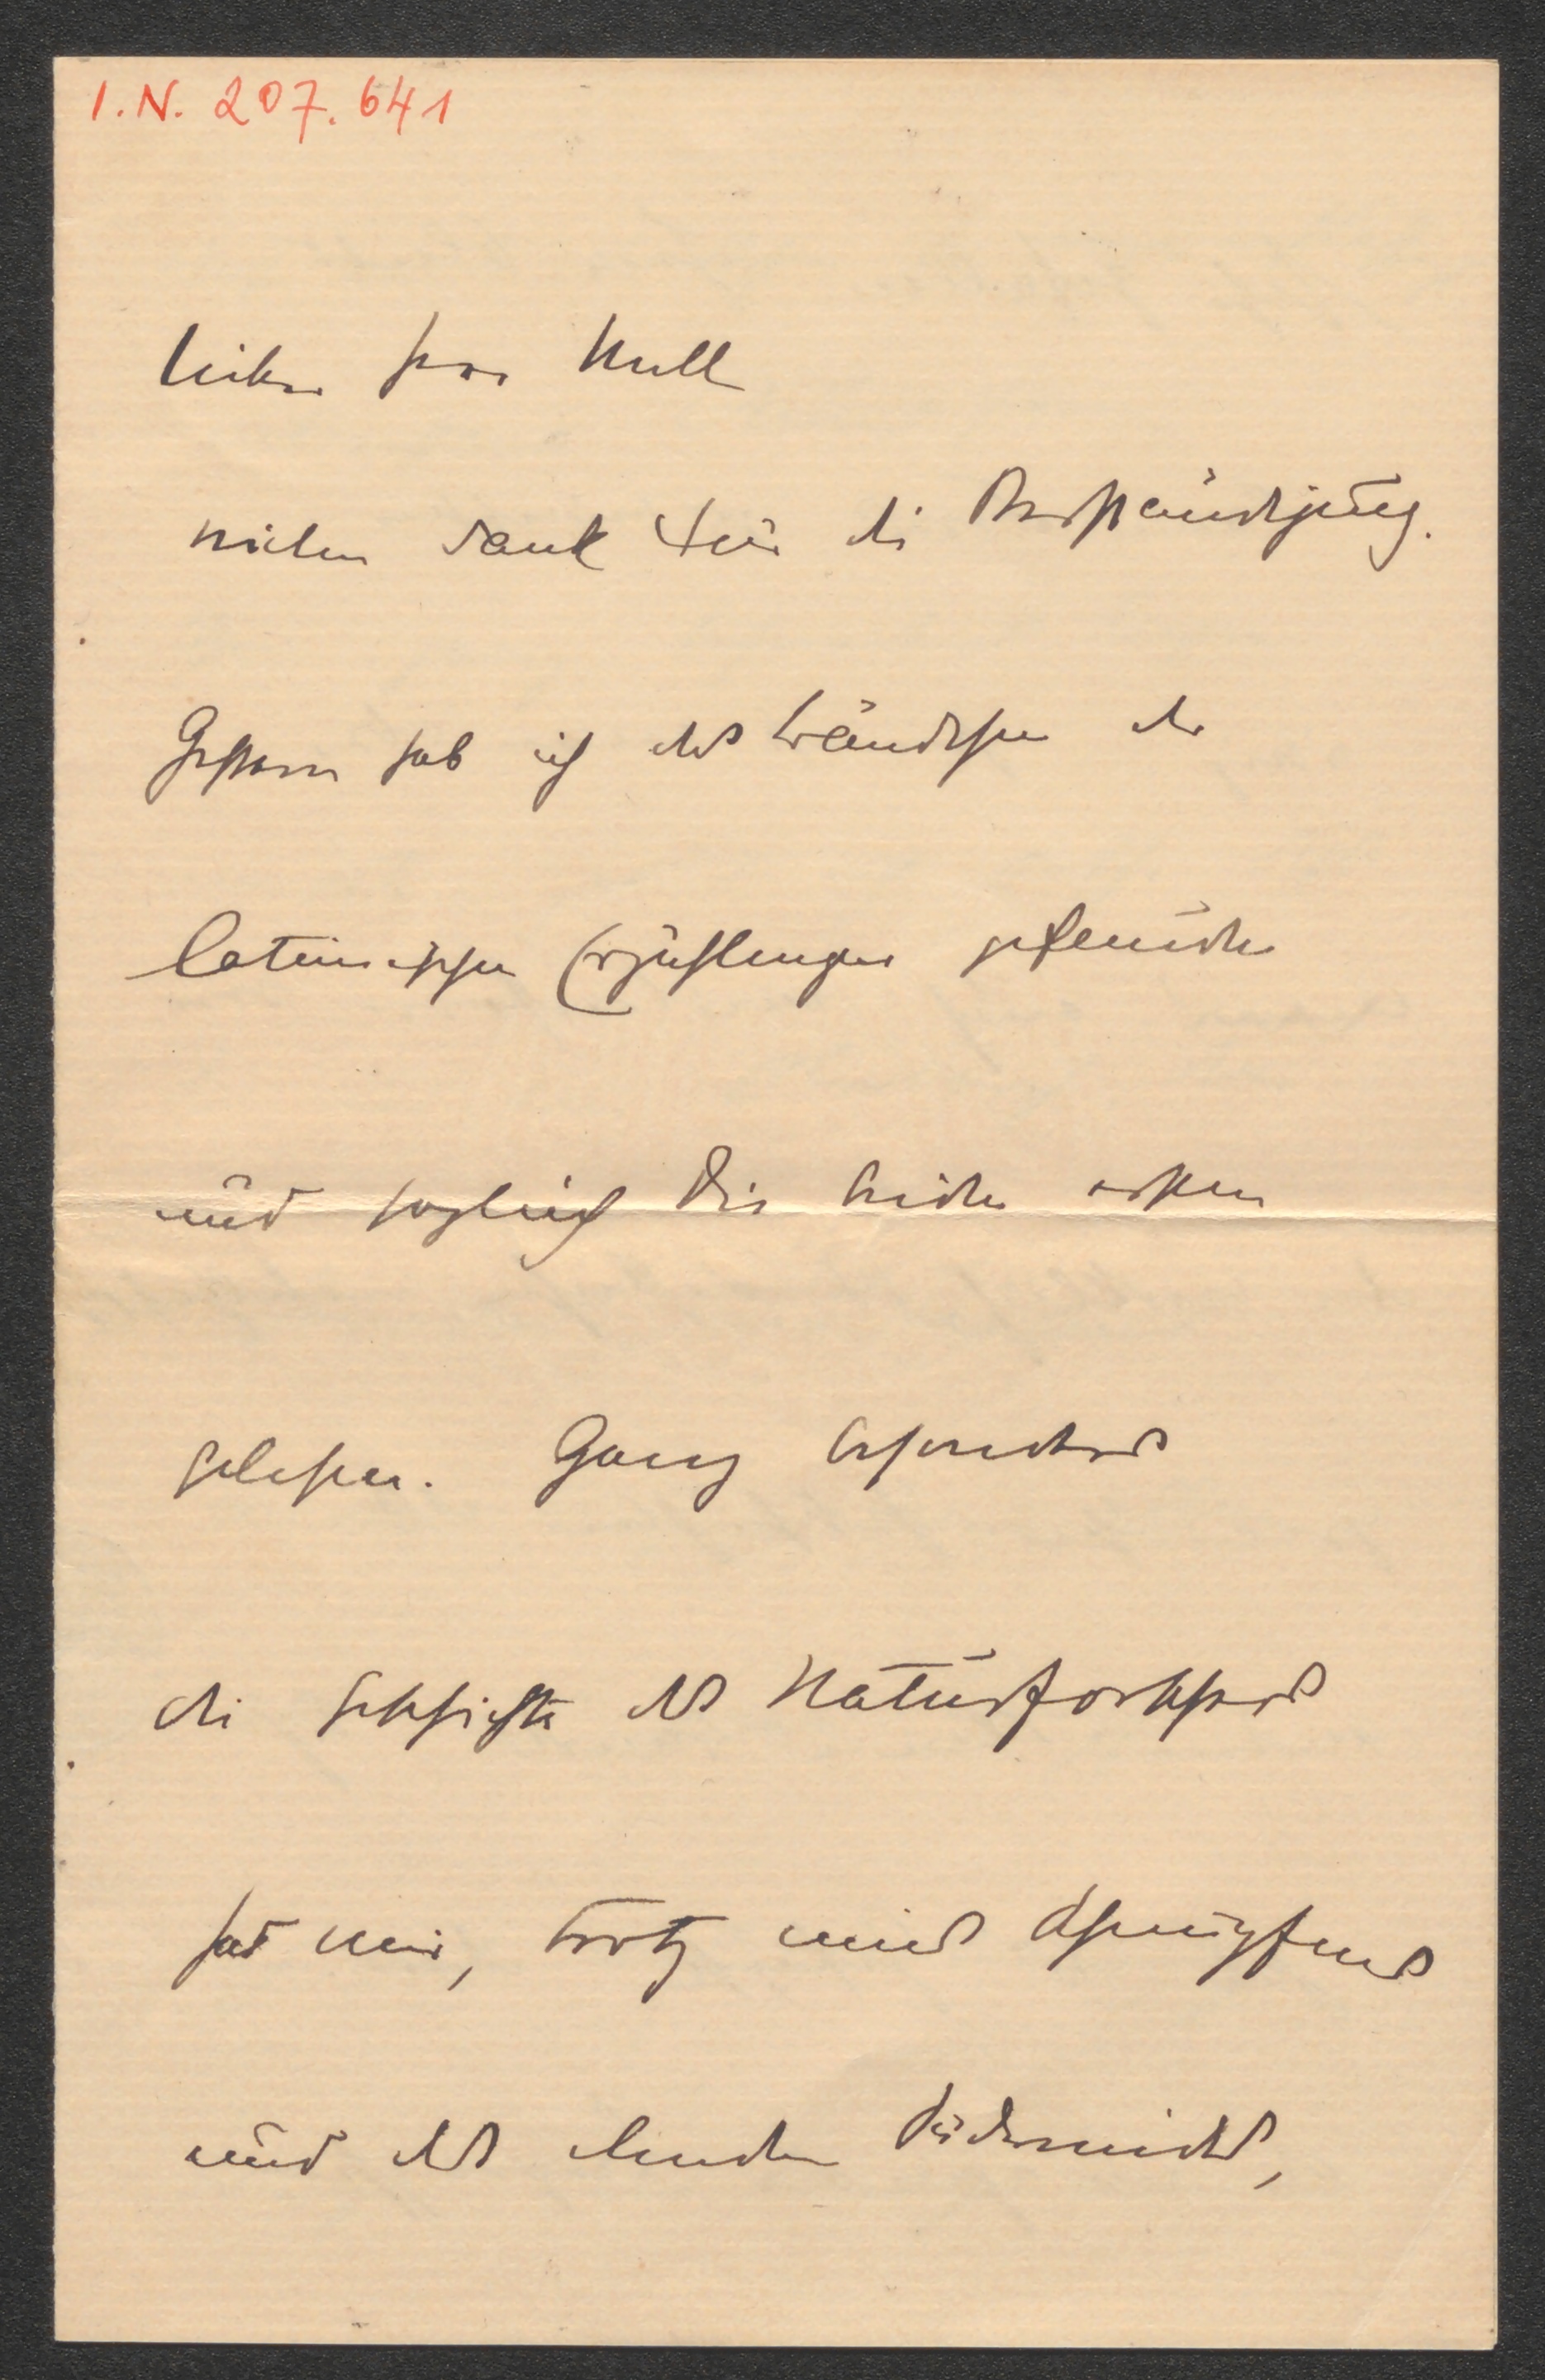 I.N. 207.641
lieber Herr Null
vielen Dank für die Verständigung.
Gestern hab ich das Bändchen der
lateinischen Erzählungen gefunden
und sogleich die beiden ersten
gelesen. Ganz besonders
die Geschichte des Naturforschers
hat mir, trotz eines Schnupfens
und des elenden Südwinds,